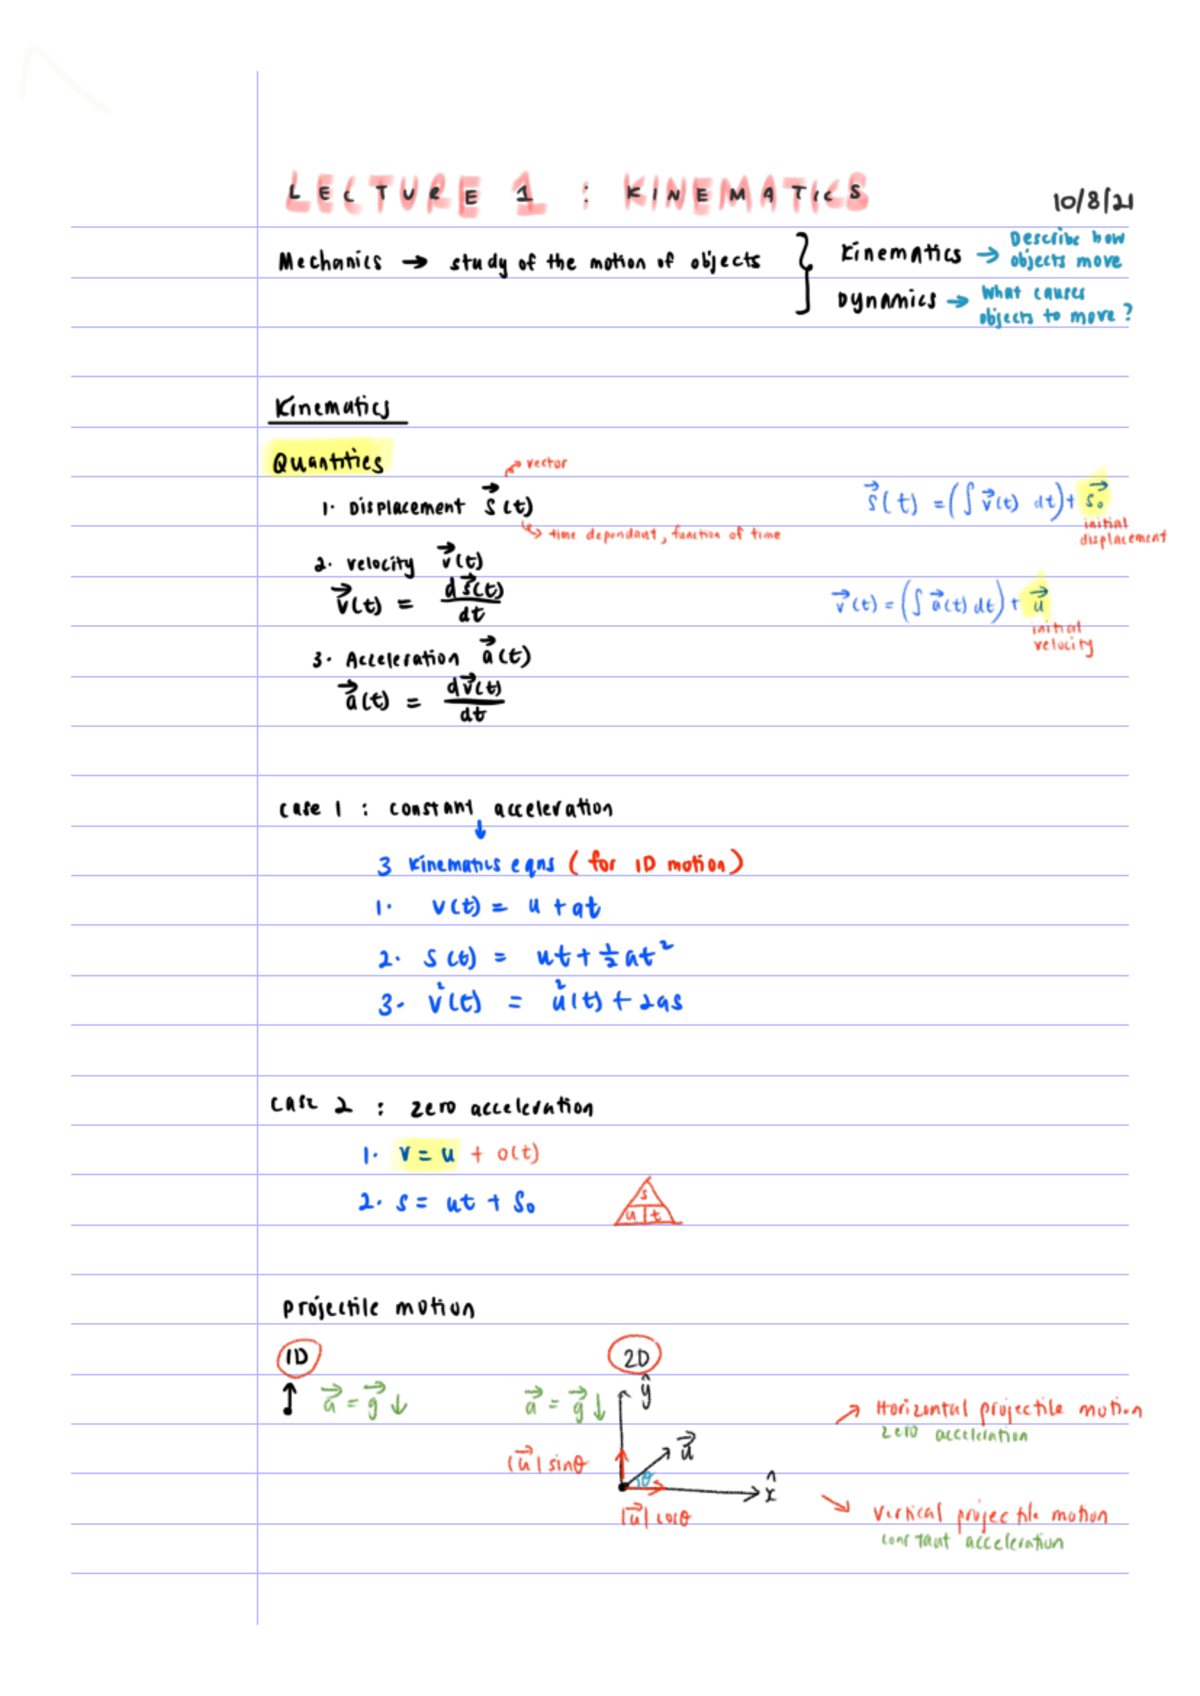 LECTURE 1 : KINEMATICS
10/8/21
Mechanics → study of the motion of objects
Kinematics → Describe how
objects move
Dynamics → What causes
objects to move?
Kinematics
Quantities
→ vector
1. Displacement s⃗(t)
↳ time dependant, function of time
s⃗(t) = (∫ v⃗(t) dt) + s⃗₀
initial
displacement
2. velocity v⃗(t)
v⃗(t) = ds⃗(t)/dt
v⃗(t) = (∫ a⃗(t) dt) + u⃗
initial
velocity
3. Acceleration a⃗(t)
a⃗(t) = dv⃗(t)/dt
case 1 : constant acceleration
↓
3 kinematics eqns (for 1D motion)
1. v(t) = u + at
2. s(t) = ut + ½at²
3. v²(t) = u²(t) + 2as
case 2 : zero acceleration
1. v = u + 0(t)
2. s = ut + S₀
s
u t
projectile motion
1D
2D
↕ a⃗ = g⃗ ↓
a⃗ = g⃗ ↓
ŷ
→ Horizontal projectile motion
zero acceleration
|u⃗| sinθ
u⃗
θ
x̂
|u⃗| cosθ
↘ vertical projectile motion
constant acceleration